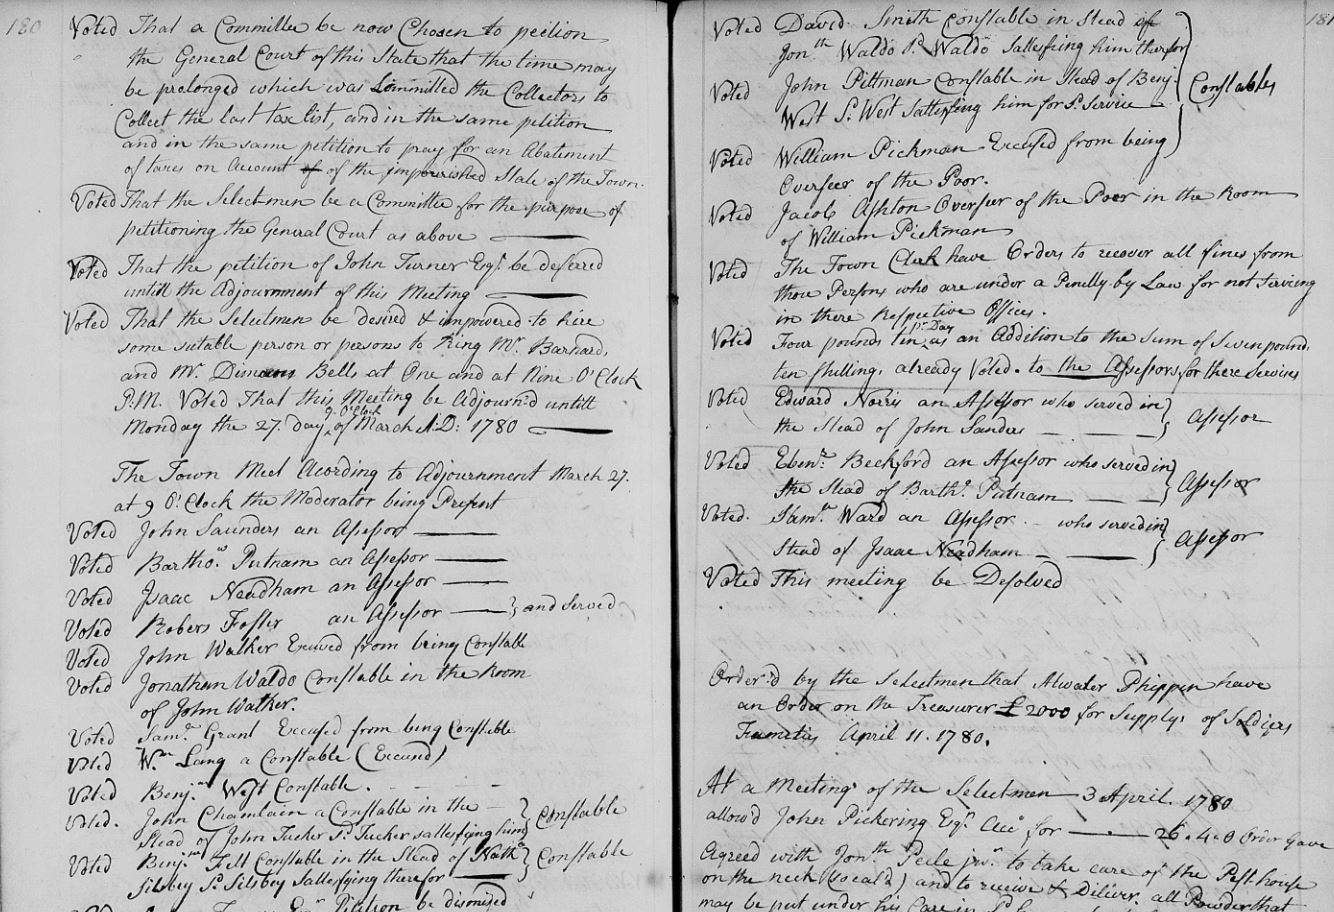 180
Voted That a Committee be now Chosen to petition
the General Court of this State that the time may
be prolonged which was Limmitted the Collectors to
Collect the last tax list, and in the same petition
and in the same petition to pray for an Abatement
of taxes on Account of of the impoverished State of the Town.
Voted That the Selectmen be a Committee for the purpose of
petitioning the General Court as above
Voted That the petition of John Turner Esqr. be defered
untill the Adjournment of this Meeting
Voted That the Selectmen be desired & impowered to hire
some sutable person or persons to Ring Mr. Barnard,
and Mr. Dimans Bells at One and at Nine O'Clock
P.M. Voted That this Meeting be Adjourn'd untill
Monday the 27. day 9 O'Clock of March A:D: 1780
The Town Meet Acording to Adjournment March 27.
at 9 O'Clock the Moderator being Present
Voted John Saunders an Assessor
Voted Bartho. Putnam an Assessor
Voted Isaac Needham an Assessor
Voted Robert Foster an Assessor and served
Voted John Walker Excused from being Constable
Voted Jonathan Waldo Constable in the Room
of John Walker.
Voted Saml. Grant Excused from being Constable
Voted Wm. Lang a Constable (Excused)
Voted Benjn. West Constable.
Voted. John Chamlain a Constable in the
Stead of John Tucker Sd. Tucker sattesfying him Constable
Voted Benjn. Felt Constable in the Stead of Nathl.
Silsbey Sd. Silsbey Sattesfying therefor Constable
Petition be dismised
181
Voted David Smith Constable in Stead of
Jonth. Waldo Sd. Waldo Sattesfying him therefor
Voted John Pittman Constable in Stead of Benj.
West Sd. West Sattesfing him for Sd. Service Constables
Voted William Pickman Excused from being
Overseer of the Poor.
Voted Jacob Ashton Overseer of the Poor in the Room
of William Pickman
Voted The Town Clerk have Orders to recover all fines from
those Persons who are under a Penelty by Law for not Serving
in there Respective Offices.
Voted Four pounds ten pr. Day as an Addition to the Sum of Seven pound,
ten shillings already Voted to the Assessors for there Services
Voted Edward Norris an Assessor who served in
the Stead of John Sanders Assessor
Voted Ebenr. Beckford an Assessor who served in
the Stead of Barthw. Putnam Assessor
Voted. Samll. Ward an Assessor who served in
Stead of Isaac Needham Assessor
Voted This meeting be Desolved
Order'd by the Selectmen that Atwater Phippen have
an Order on the Treasurer £2000 for Supplys of Soldiers
Fameties April 11. 1780.
At a Meeting of the Selectmen 3 April. 1780
allow'd John Pickering Esqr. Acc. for 26.4.0 Order Gave
Agreed with Jonth. Peele junr. to take care of the Pest house
on the neck (so cald) and to receive & Deliver all Powder that
may be put under his Care in